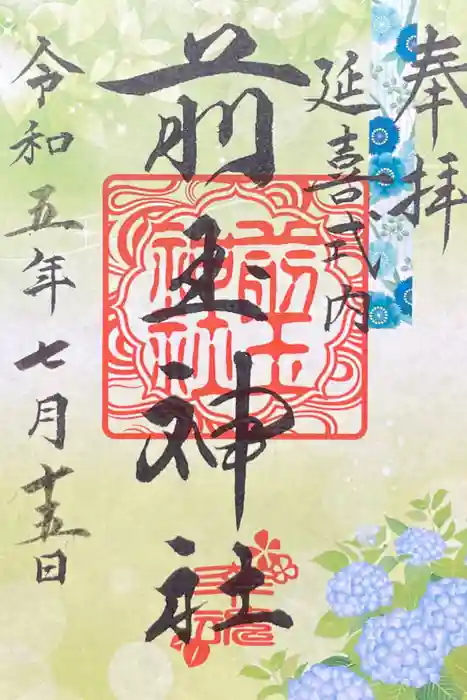 奉拝
延喜式内
前玉神社
前玉神社
令和五年七月十五日